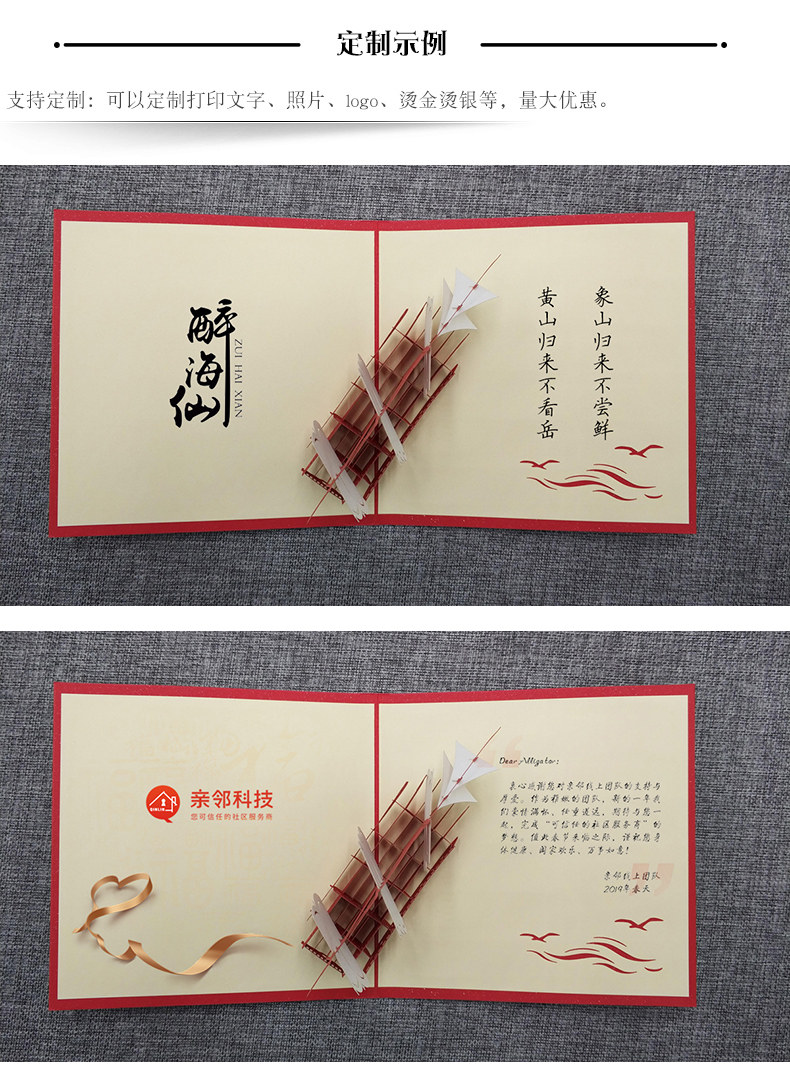 定制示例
支持定制：可以定制打印文字、照片、logo、烫金烫银等，量大优惠。
醉海仙
ZUI HAI XIAN
象山归来不尝鲜
黄山归来不看岳
QINLIN
亲邻科技
您可信任的社区服务商
Dear Alligator:
衷心感谢您对亲邻线上团队的支持与
厚爱。作为积极的团队，新的一年我
们豪情满怀，任重道远，期待与您一
起，完成“可信任的社区服务商”的
梦想。值此春节来临之际，谨祝您身
体健康、阖家欢乐、万事如意！
亲邻线上团队
2019年春天